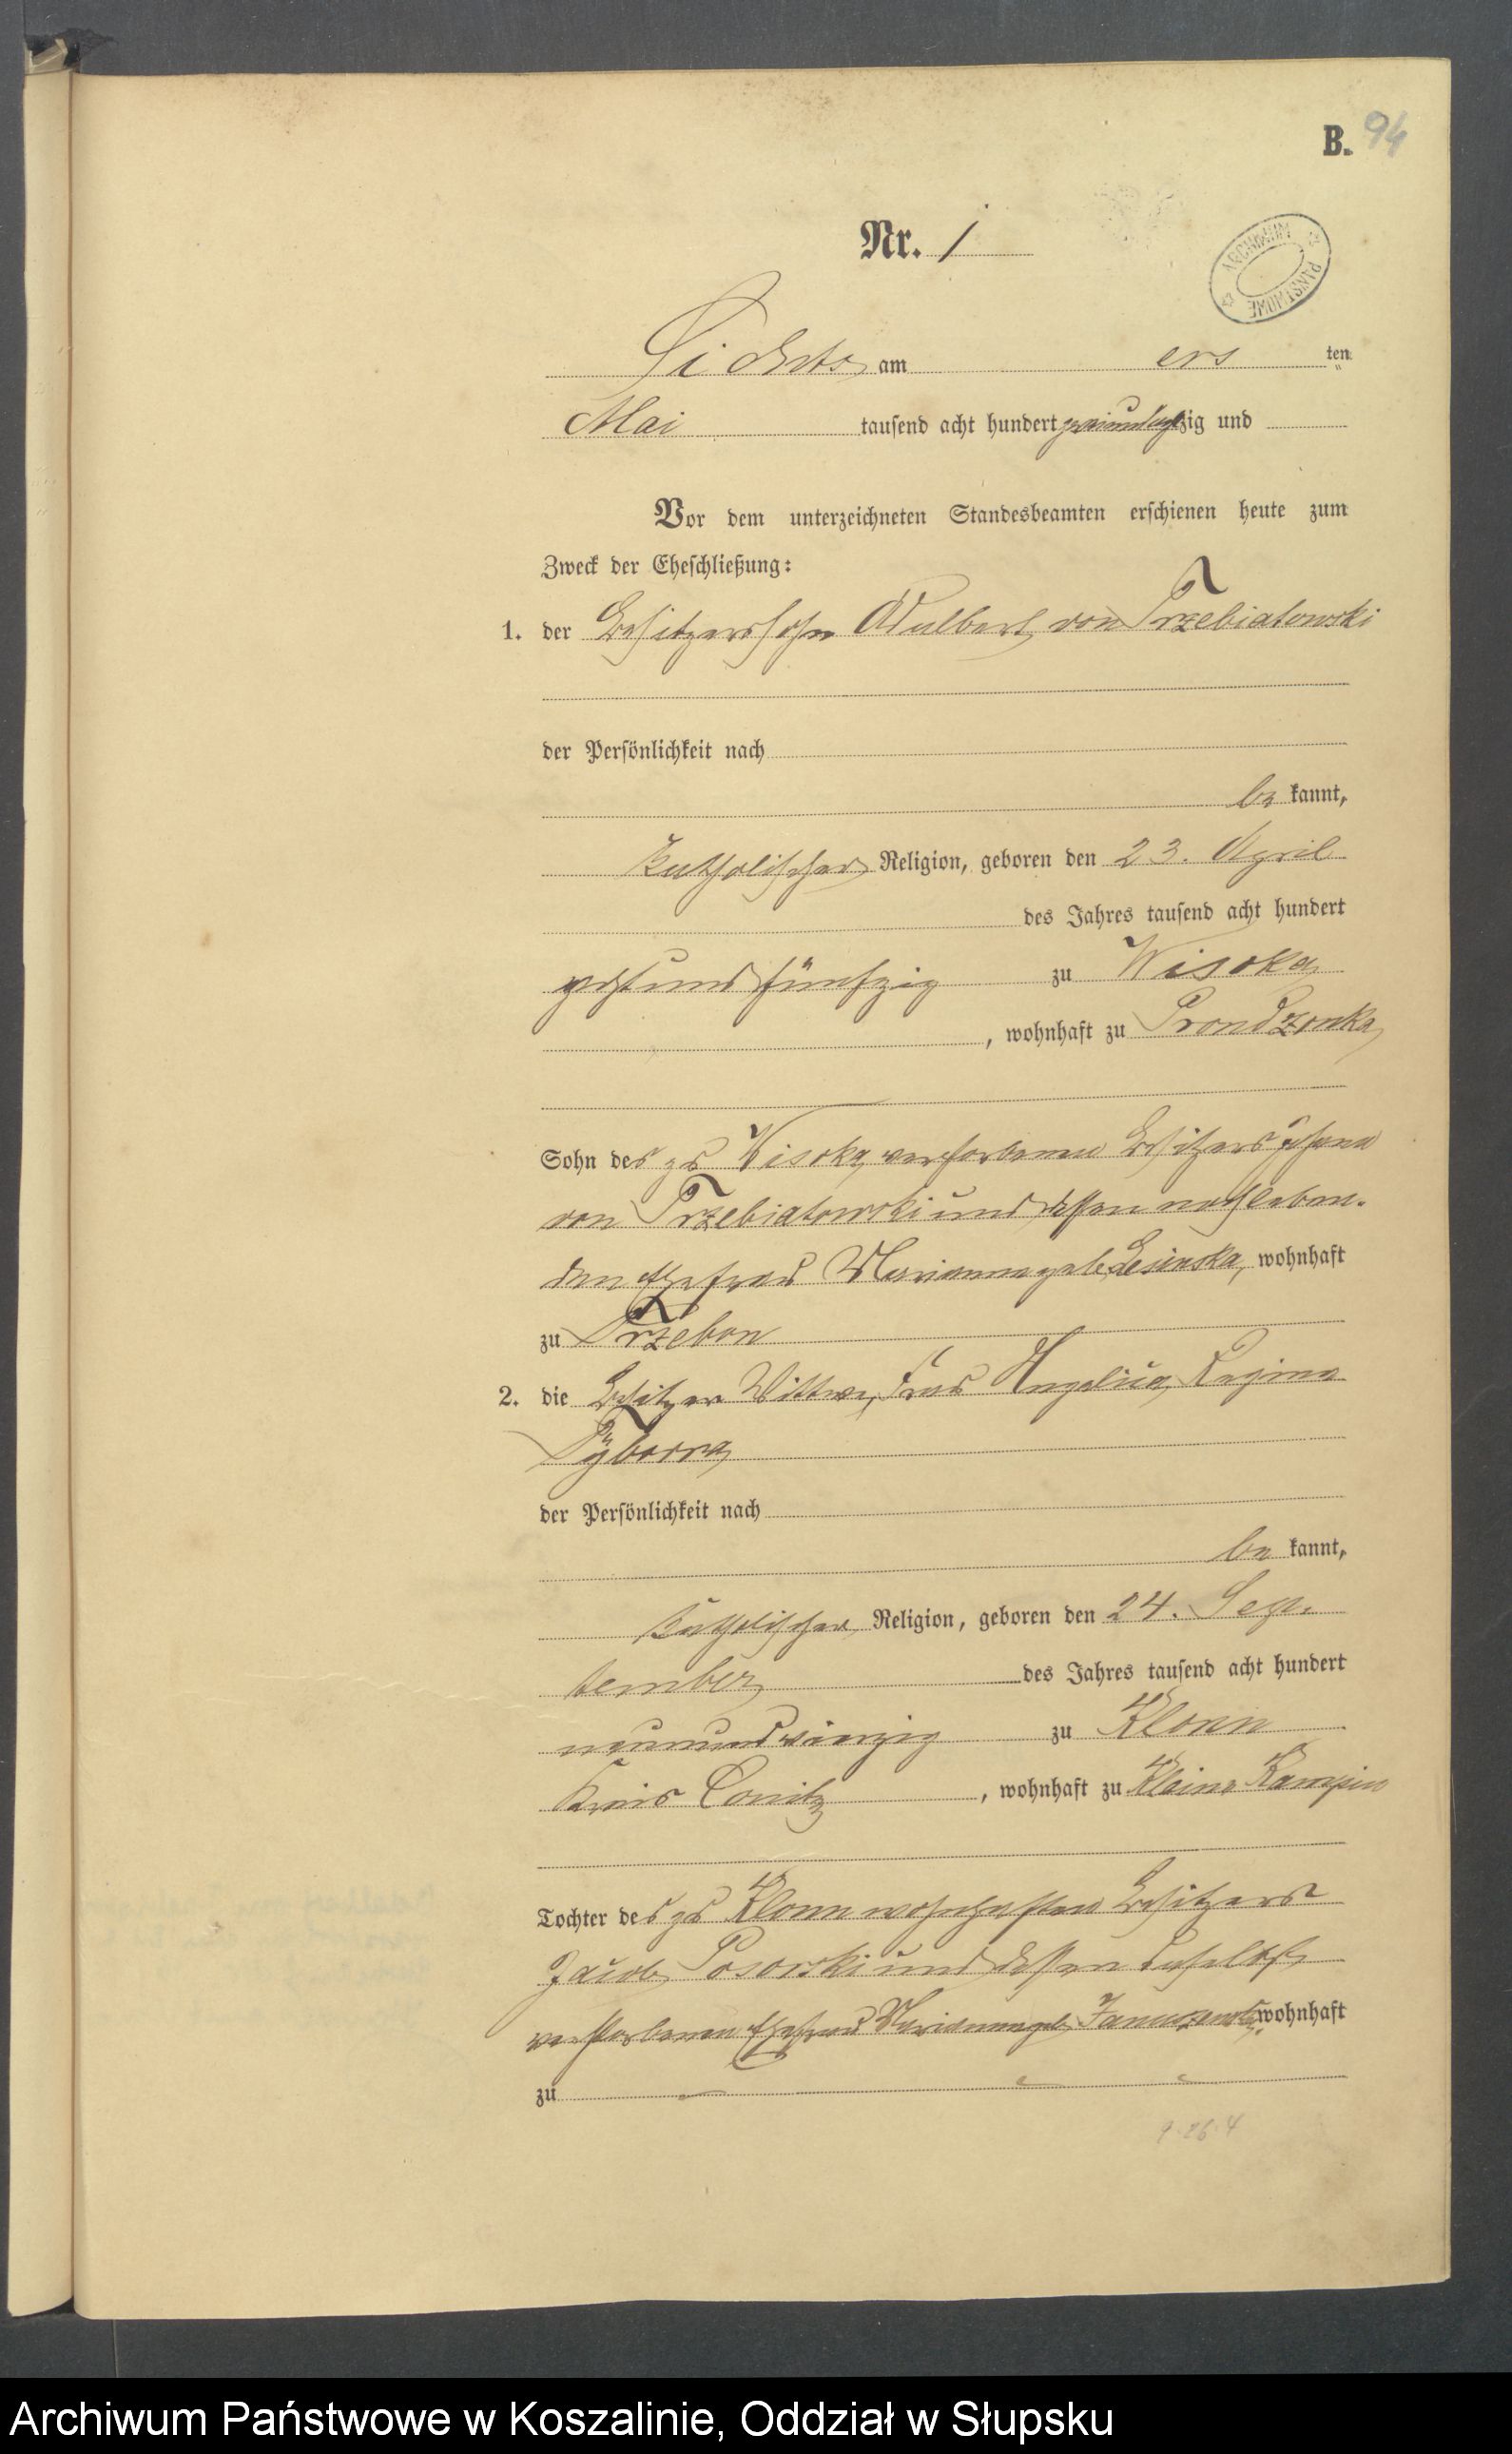 B. 94
Nr. 1
ARCHIWUM PAŃSTWOWE
am ers ten
Mai tausend acht hundert zweiundachtzig und
Vor dem unterzeichneten Standesbeamten erschienen heute zum
Zweck der Eheschließung:
1. der Besitzerssohn Adalbert von Trzebiatowski
der Persönlichkeit nach
be kannt,
katholischer Religion, geboren den 23. April
des Jahres tausend acht hundert
fünfzig zu Wisoka
, wohnhaft zu Prondzonka
Sohn des zu Wisoka verstorbenen Besitzers Johann
von Trzebiatowski und dessen nachleben-
den Ehefrau Marianna geb. Lesinska, wohnhaft
zu Trzebon
2. die Besitzer Wittwe, Frau Angelica, Regina
Tyborra
der Persönlichkeit nach
be kannt,
katholischer Religion, geboren den 24. Sep-
tember des Jahres tausend acht hundert
neunundvierzig zu Klonn
Kreis Conitz, wohnhaft zu Kleine Kampin
Tochter des zu Klonn wohnhaften Besitzers
Jacob Posorski und dessen daselbst
verstorbenen Ehefrau Marianna geb. wohnhaft
zu
9.26.4
Archiwum Państwowe w Koszalinie, Oddział w Słupsku